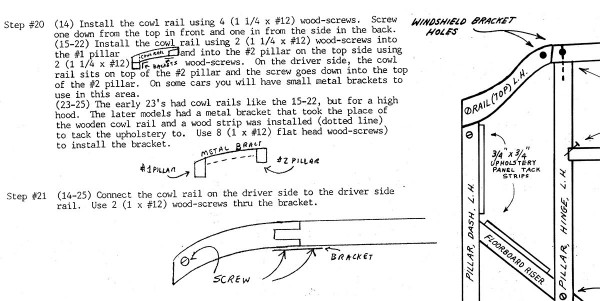 Step #20 (14) Install the cowl rail using 4 (1 1/4 x #12) wood-screws. Screw
one down from the top in front and one in from the side in the back.
(15-22) Install the cowl rail using 2 (1 1/4 x #12) wood-screws into
the #1 pillar and into the #2 pillar on the top side using
2 (1 1/4 x #12) wood-screws. On the driver side, the cowl
rail sits on top of the #2 pillar and the screw goes down into the top
of the #2 pillar. On some cars you will have small metal brackets to
use in this area.
(23-25) The early 23's had cowl rails like the 15-22, but for a high
hood. The later models had a metal bracket that took the place of
the wooden cowl rail and a wood strip was installed (dotted line)
to tack the upholstery to. Use 8 (1 x #12) flat head wood-screws)
to install the bracket.
METAL BRACT
#1 PILLAR
#2 PILLAR
Step #21 (14-25) Connect the cowl rail on the driver side to the driver side
rail. Use 2 (1 x #12) wood-screws thru the bracket.
SCREW
BRACKET
WINDSHIELD BRACKET
HOLES
RAIL (TOP) L.H.
3/4" x 3/4"
UPHOLSTERY
PANEL TACK
STRIPS
PILLAR, DASH, L.H.
PILLAR, HINGE, L.H.
FLOORBOARD RISER